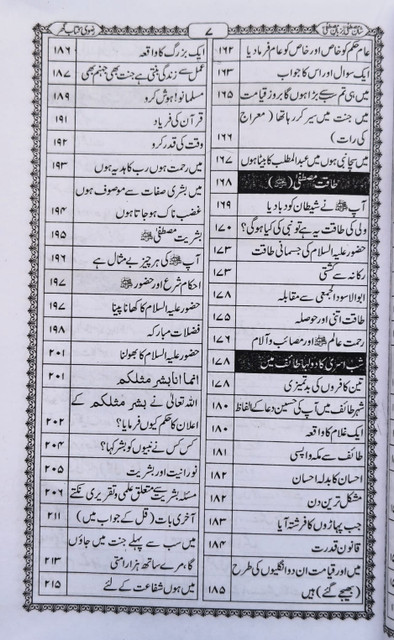 شان مصطفیٰ بزبان مصطفیٰ ﷺ
۷
رضوی کتاب گھر
عام حکم کو خاص اور خاص کو عام فرما دیا ۱۶۲
ایک سوال اور اس کا جواب ۱۶۳
میں ہی تم سے بڑا ہوں گا بروز قیامت ۱۶۵
میں جنت میں سیر کر رہا تھا (معراج
کی رات) ۱۶۶
میں سچا نبی ہوں میں عبدالمطلب کا بیٹا ہوں ۱۶۷
طاقت مصطفیٰ (ﷺ) ۱۶۸
آپ ﷺ نے شیطان کو دبا دیا ۱۶۹
ولی کی طاقت یہ ہے تو نبی کی کیا ہوگی؟ ۱۷۰
حضور علیہ السلام کی جسمانی طاقت ۱۷۳
رکانہ سے کشتی ۱۷۳
ابوالاسود الجمعی سے مقابلہ ۱۷۸
طاقت اتنی اور حوصلہ ۱۷۵
رحمت عالم ﷺ اور مصائب و آلام ۱۷۶
شب اسریٰ کا دولہا طائف میں ۱۷۸
تین کافروں کی بدتمیزی ۱۷۸
شہر طائف میں آپ کی حسین دعا کے الفاظ ۱۸۰
ایک غلام کا واقعہ ۱۸۰
طائف سے مکہ واپسی ۱۸۱
احسان کا بدلہ احسان ۱۸۲
مشکل ترین دن ۱۸۲
جب پہاڑوں کا فرشتہ آیا ۱۸۳
قانون قدرت ۱۸۴
میں اور قیامت ان دو انگلیوں کی طرح
(بھیجے گئے) ہیں ۱۸۵
ایک بزرگ کا واقعہ ۱۸۶
عمل سے زندگی بنتی ہے جنت بھی جہنم بھی ۱۸۷
مسلمانو! ہوش کرو ۱۸۹
قرآن کی فریاد ۱۹۱
وقت کی قدر کرو ۱۹۲
میں رحمت ہوں رب کا ہدیہ ہوں ۱۹۳
میں بشری صفات سے موصوف ہوں
غضب ناک ہو جاتا ہوں ۱۹۴
بشریت مصطفیٰ ﷺ ۱۹۵
آپ ﷺ کی ہر چیز بے مثال ہے ۱۹۶
احکام شرع اور حضور ﷺ ۱۹۷
حضور علیہ السلام کا کھانا پینا ۱۹۷
فضلات مبارکہ ۱۹۸
حضور علیہ السلام کا بھولنا ۲۰۱
انما انا بشر مثلکم ۲۰۱
اللہ تعالیٰ نے بشر مثلکم کے
اعلان کا حکم کیوں فرمایا؟ ۲۰۲
کس کس نے نبیوں کو بشر کہا؟ ۲۰۴
نورانیت اور بشریت ۲۰۵
مسئلہ بشریت سے متعلق علمی و تقریری نکتے ۲۰۶
آخری بات (قل کے جواب میں) ۲۱۱
میں سب سے پہلے جنت میں جاؤں
گا، میرے ساتھ ہزار امتی ۲۱۳
میں ہوں شفاعت کے لئے ۲۱۵